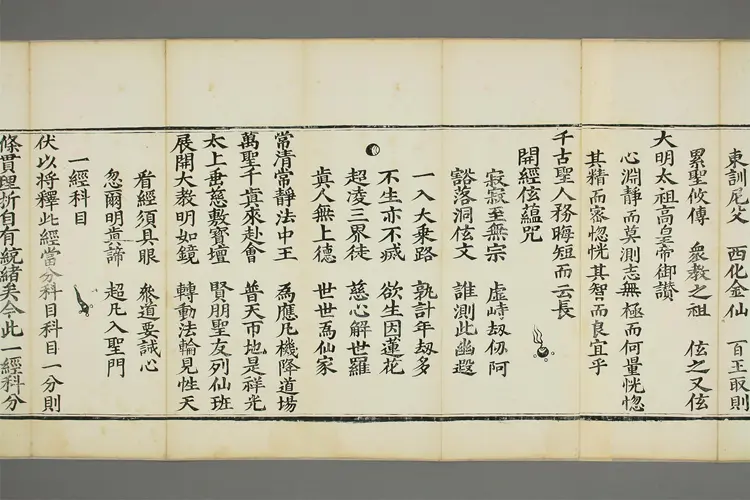 東訓尼父　西化金仙　百王取則
累聖攸傳　衆教之祖　伭之又伭
大明太祖高皇帝御讃
心淵靜而莫測志無極而何量恍惚
其精而宻惚恍其智而良宜乎
千古聖人務晦短而云長
開經伭蘊咒
寂寂至無宗　虛峙刼仞阿
豁落洞伭文　誰測此幽遐
一入大乘路　孰計年刼多
不生亦不㓕　欲生因蓮花
超凌三界徒　慈心解世羅
眞人無上德　世世爲仙家
常清常靜法中王　爲應凡機降道場
萬聖千眞來赴會　普天帀地是祥光
太上垂慈敷寶壇　賢朋聖友列仙班
展開大教明如鏡　轉動法輪見性天
看經須具眼　叅道要誠心
忽爾明眞諦　超凡入聖門
一經科目
伏以将釋此經當分科目科目一分則
條貫理折自有統緒矣今此一經科分